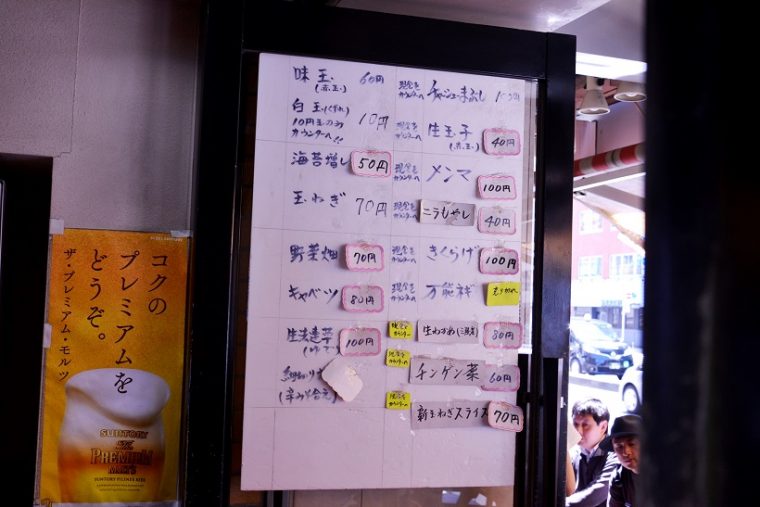 味玉 60円
(赤玉)
白玉(くずれ) 10円
10円玉のみ
カウンターへ!!
海苔増し 50円
玉ねぎ 70円
野菜畑 70円
キャベツ 80円
100円
(辛み和え)
現金を
カウンターへ
チャーシュー
現金を
カウンターへ
生玉子 40円
(赤玉)
現金を
カウンターへ
メンマ 100円
現金を
カウンターへ
ニラもやし 40円
現金を
カウンターへ
きくらげ 100円
現金を
カウンターへ
万能ねぎ 売り切れ
生わかめ(三陸産) 80円
チンゲン菜 60円
新玉ねぎスライス 70円
コクの
プレミアムを
どうぞ。
ザ・プレミアム・モルツ
SUNTORY
The
PREMIUM
MALT'S
SUNTORY PILSNER BEER